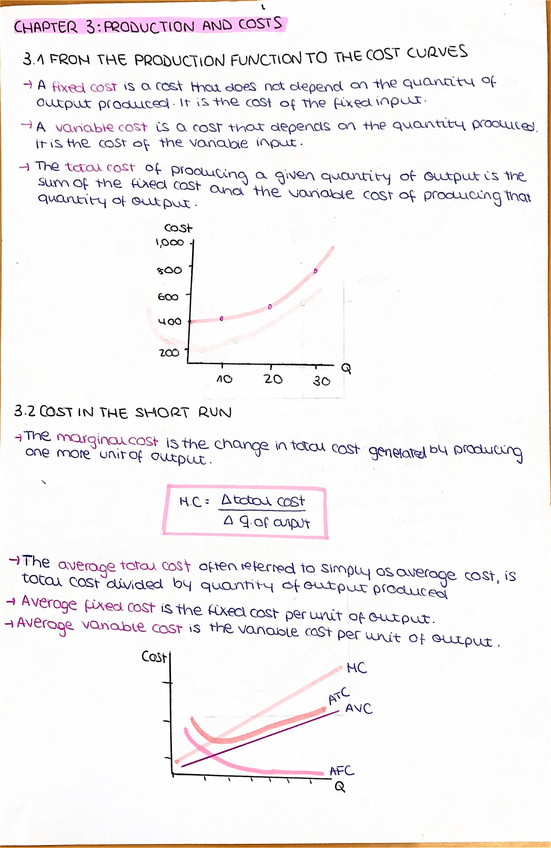 CHAPTER 3: PRODUCTION AND COSTS
3.1 FROM THE PRODUCTION FUNCTION TO THE COST CURVES
→ A fixed cost is a cost that does not depend on the quantity of
output produced. It is the cost of the fixed input.
→ A variable cost is a cost that depends on the quantity produced.
It is the cost of the variable input.
→ The total cost of producing a given quantity of output is the
sum of the fixed cost and the variable cost of producing that
quantity of output.
cost
1,000
800
600
400
200
10 20 30
Q
3.2 COST IN THE SHORT RUN
→ The marginal cost is the change in total cost generated by producing
one more unit of output.
MC = Δ total cost
Δ q. of output
→ The average total cost often referred to simply as average cost, is
total cost divided by quantity of output produced
→ Average fixed cost is the fixed cost per unit of output.
→ Average variable cost is the variable cost per unit of output.
Cost
MC
ATC
AVC
AFC
Q